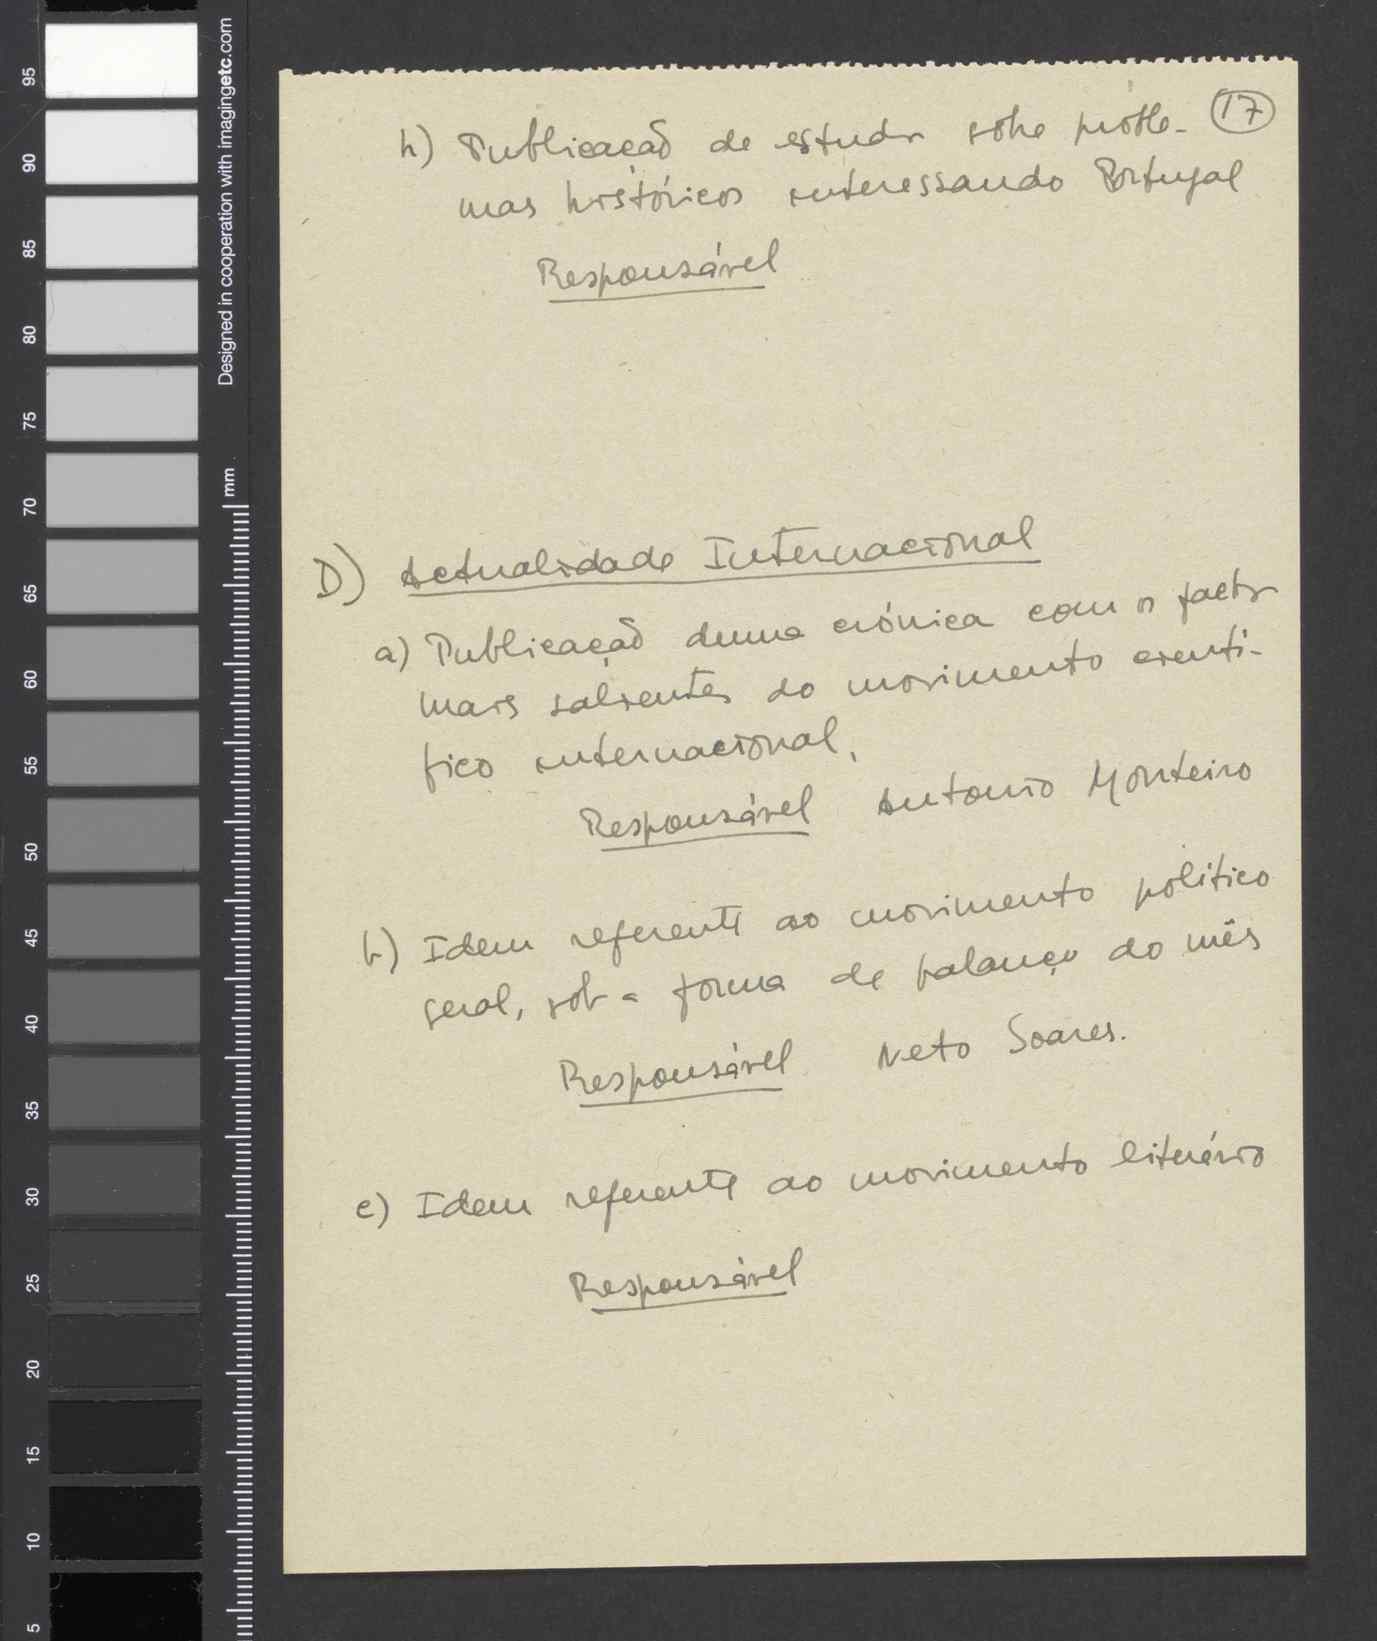 17
h) Publicação de estudos sobre proble-
mas históricos interessando Portugal
Responsável
D) Actualidade Internacional
a) Publicação duma crónica com os factos
mais salientes do movimento cientí-
fico internacional.
Responsável Antonio Monteiro
b) Idem referente ao movimento político
geral, sob a forma de balanço do mês
Responsável Neto Soares.
c) Idem referente ao movimento literário
Responsável
Designed in cooperation with imagingetc.com
mm
95
90
85
80
75
70
65
60
55
50
45
40
35
30
25
20
15
10
5